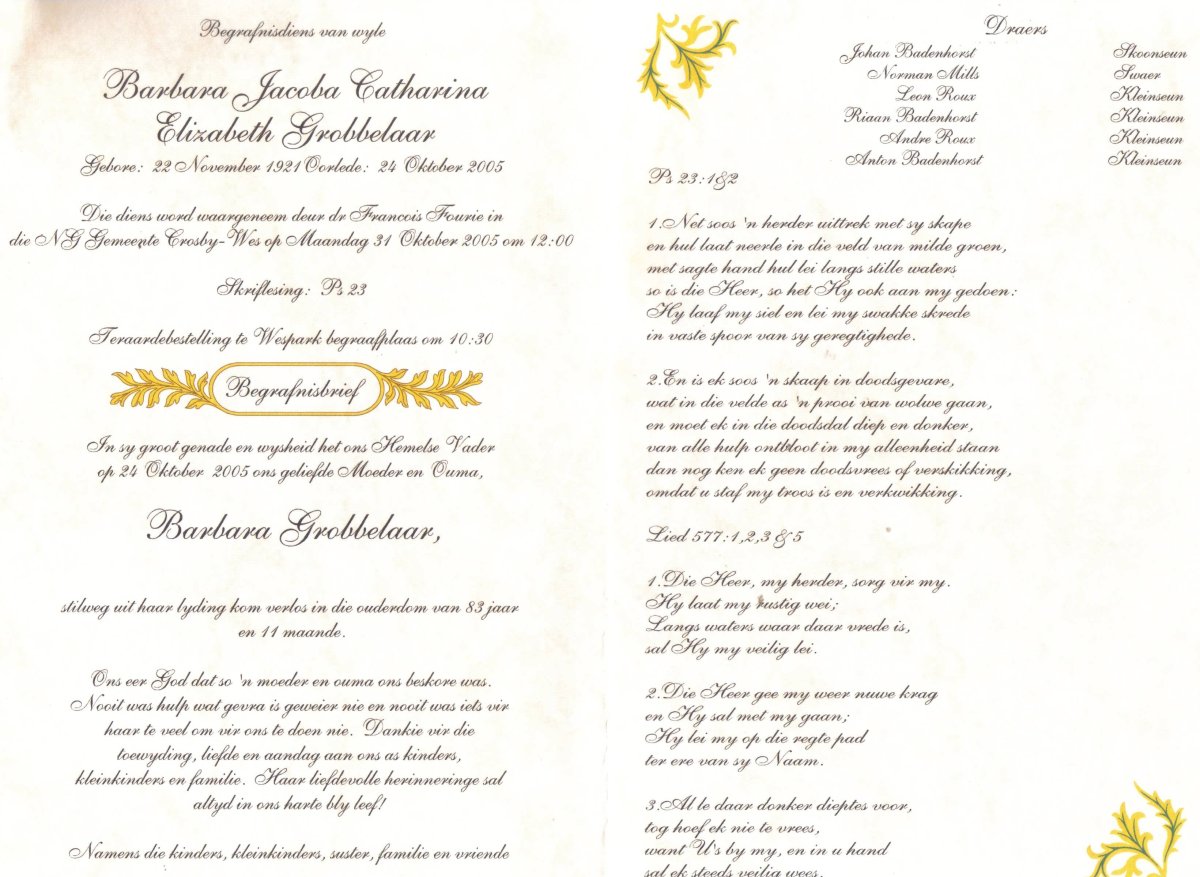 Begrafnisdiens van wyle
Barbara Jacoba Catharina
Elizabeth Grobbelaar
Gebore: 22 November 1921 Oorlede: 24 Oktober 2005
Die diens word waargeneem deur dr Francois Fourie in
die NG Gemeente Crosby-Wes op Maandag 31 Oktober 2005 om 12:00
Skriflesing: Ps 23
Teraardebestelling te Wespark begraafplaas om 10:30
Begrafnisbrief
In sy groot genade en wysheid het ons Hemelse Vader
op 24 Oktober 2005 ons geliefde Moeder en Ouma,
Barbara Grobbelaar,
stilweg uit haar lyding kom verlos in die ouderdom van 83 jaar
en 11 maande.
Ons eer God dat so 'n moeder en ouma ons beskore was.
Nooit was hulp wat gevra is geweier nie en nooit was iets vir
haar te veel om vir ons te doen nie. Dankie vir die
toewyding, liefde en aandag aan ons as kinders,
kleinkinders en familie. Haar liefdevolle herinneringe sal
altyd in ons harte bly leef!
Namens die kinders, kleinkinders, suster, familie en vriende
Draers
Johan Badenhorst Skoonseun
Norman Mills Swaer
Leon Roux Kleinseun
Riaan Badenhorst Kleinseun
Andre Roux Kleinseun
Anton Badenhorst Kleinseun
Ps 23:1&2
1.Net soos 'n herder uittrek met sy skape
en hul laat neerle in die veld van milde groen,
met sagte hand hul lei langs stille waters
so is die Heer, so het Hy ook aan my gedoen:
Hy laaf my siel en lei my swakke skrede
in vaste spoor van sy geregtighede.
2.En is ek soos 'n skaap in doodsgevare,
wat in die velde as 'n prooi van wolwe gaan,
en moet ek in die doodsdal diep en donker,
van alle hulp ontbloot in my alleenheid staan
dan nog ken ek geen doodsvrees of verskikking,
omdat u staf my troos is en verkwikking.
Lied 577:1,2,3 & 5
1.Die Heer, my herder, sorg vir my.
Hy laat my rustig wei;
Langs waters waar daar vrede is,
sal Hy my veilig lei.
2.Die Heer gee my weer nuwe krag
en Hy sal met my gaan;
Hy lei my op die regte pad
ter ere van sy Naam.
3.Al le daar donker dieptes voor,
tog hoef ek nie te vrees,
want U's by my, en in u hand
sal ek steeds veilig wees.